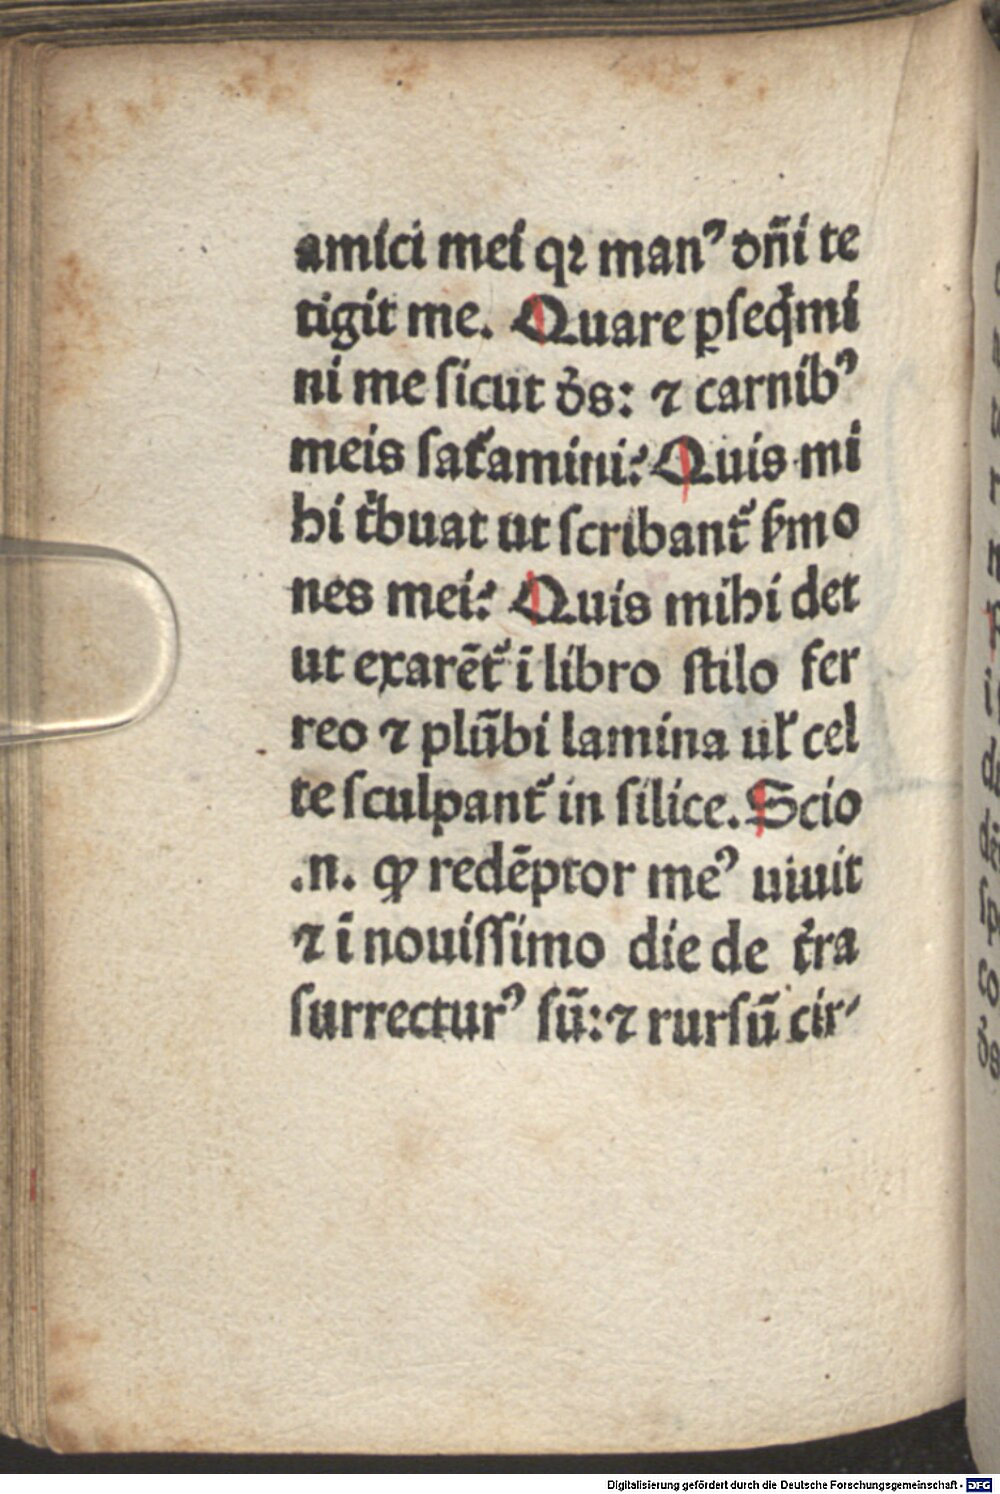 amici mei qꝛ manꝰ dn̄i te
tigit me. Quare ꝑſeq̄mi
ni me ſicut d̓s: ⁊ carnibꝰ
meis ſat᷑amini? Quis mi
hi t̓buat ut ſcribant᷑ ẜmo
nes mei? Quis mihi det
ut exarēt᷑ ī libro ſtilo fer
reo ⁊ plūbi lamina ul̓ cel
te ſculpant᷑ in ſilice. Scio
.n. ꝙ redēptor meꝰ uiuit
⁊ ī nouiſſimo die de t̓ra
ſurrecturꝰ ſū: ⁊ rurſū cir-
Digitalisierung gefördert durch die Deutsche Forschungsgemeinschaft - DFG